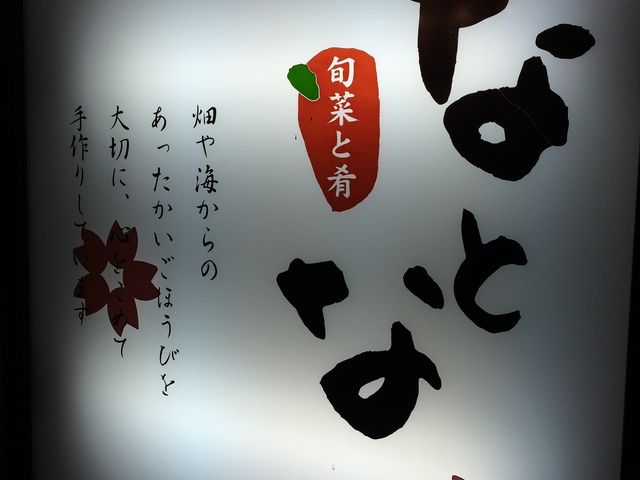 なと
な
旬菜と肴
畑や海からの
あったかいごほうびを
大切に、心をこめて
手作りしています